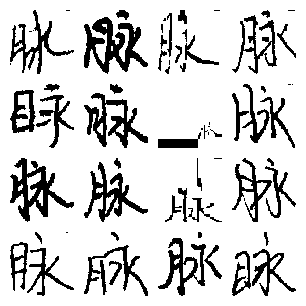 脉 脉 脉 脉
脉 脉 脉 脉
脉 脉 脉 脉
脉 脉 脉 脉